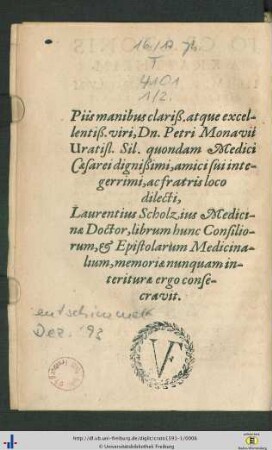 16/A.76
T
4101
1/2.
Piis manibus clariß. atque excel-
lentiß. viri, Dn. Petri Monavii
Uratisl. Sil. quondam Medici
Cæsarei dignißimi, amici sui inte-
gerrimi, ac fratris loco
dilecti,
Laurentius Scholzius Medici-
næ Doctor, librum hunc Consilio-
rum, & Epistolarum Medicina-
lium, memoriæ nunquam in-
teriturae ergo conse-
cravit.
entschimmelt
Dez. '93
VF
http://dl.ub.uni-freiburg.de/diglit/crato1591-1/0006
© Universitätsbibliothek Freiburg
Baden-Württemberg